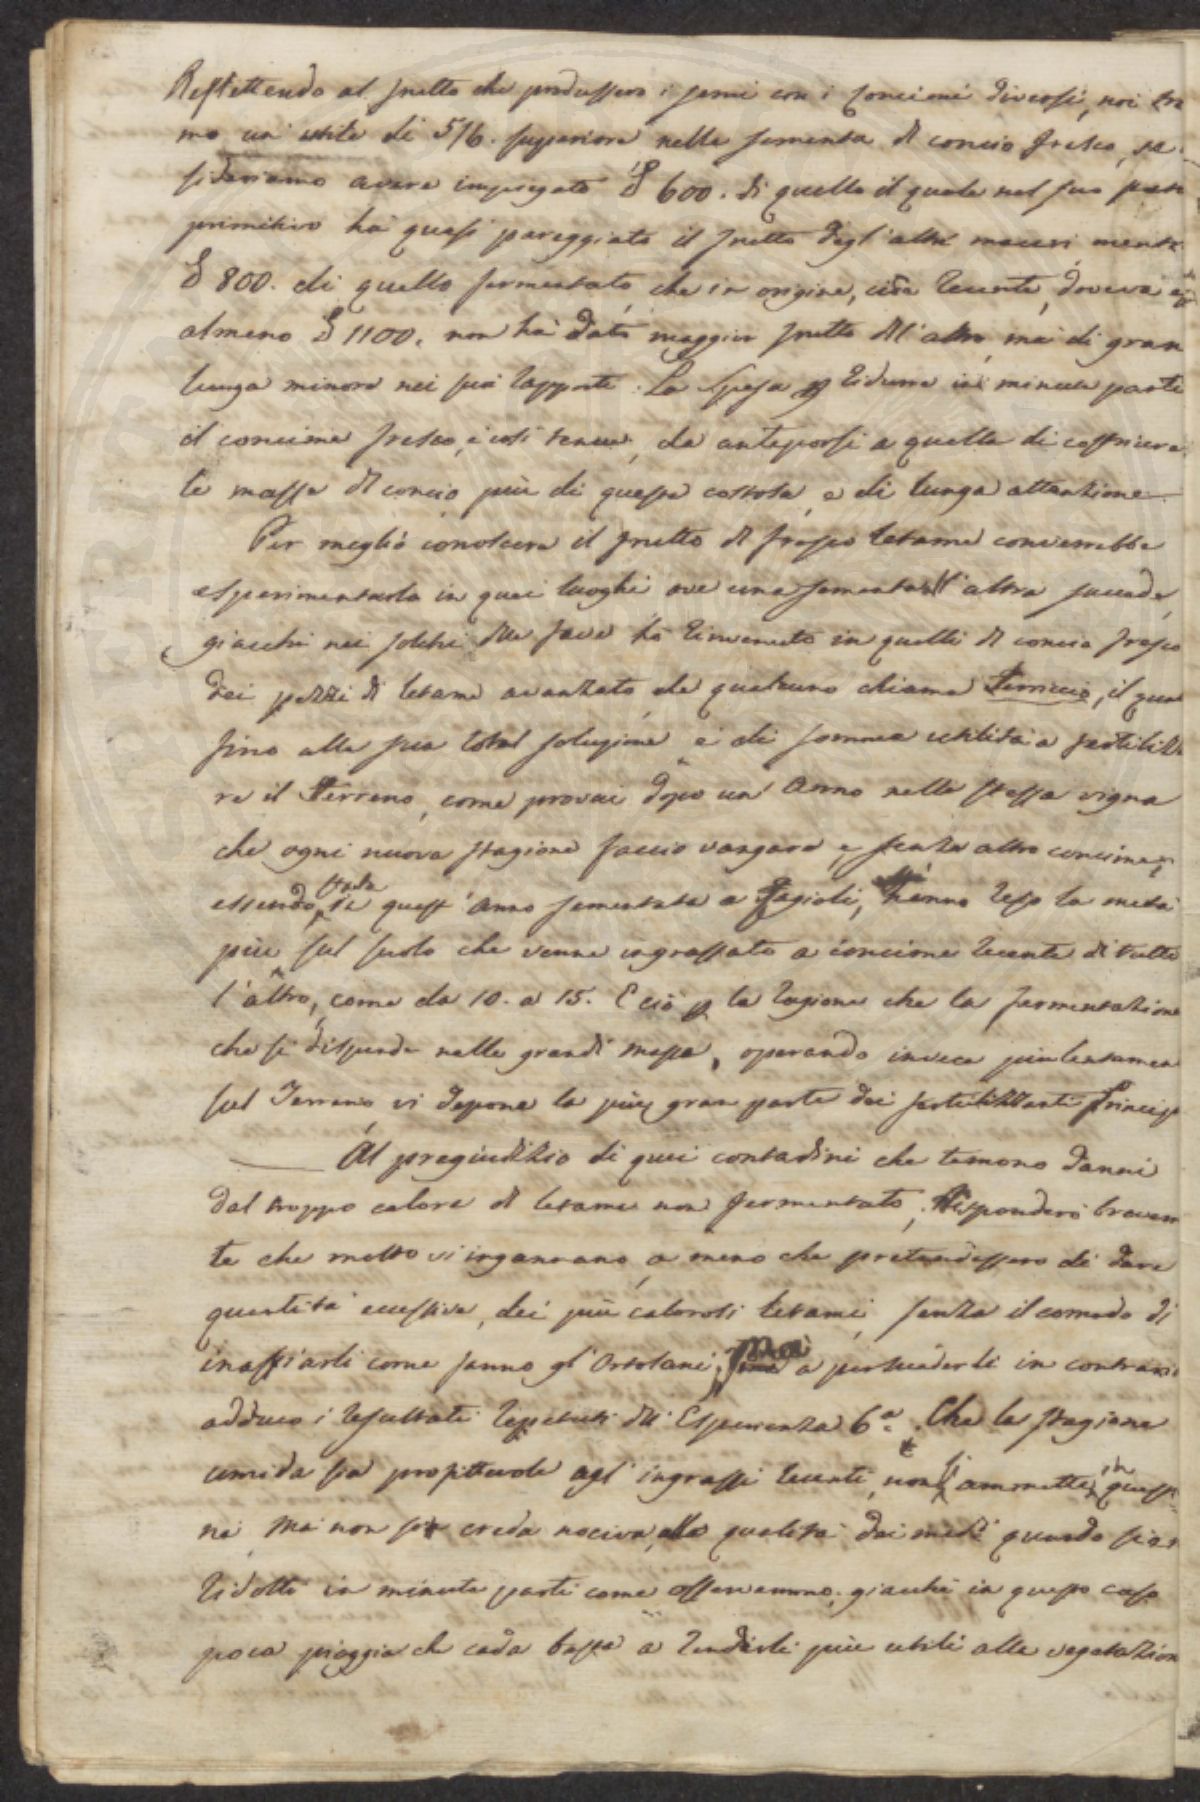 Reflettendo al frutto che produssero i semi con i concimi diversi, noi tro
mo un' utile di 5/6. superiore nella sementa di concio fresco, se
sideriamo avere impiegato £ 600. di quello il quale nel suo stato
primitivo ha quasi pareggiato il frutto degl' altri maceri mentr
£ 800. di quello fermentato, che in origine, cioè recente, doveva
almeno £ 1100. non ha dato maggior frutto dell' altro, ma di gran
lunga minore nei suoi rapporti. La spesa per ridurre in minute parti
il concime fresco, è così tenue, da anteporsi a quella di costruire
le masse di concio più di questa costosa, e di lunga attenzione.
Per meglio conoscere il frutto di fresco letame converrebbe
esperimentarlo in quei luoghi ove una sementa all' altra succede,
giacchè nei solchi delle fave ho rinvenuto in quelli di concio fresco
dei pezzi di letame avanzato, che qualcuno chiama Terriccio, il qua
fino alla sua total soluzione è di somma utilità a fertiliz
re il Terreno, come provai dopo un' Anno nella stessa vigna
che ogni nuova stagione faccio vangare, e senza altro concime,
essendo stata quest' Anno sementata a Fagioli, hanno reso la metà
più sul suolo che venne ingrassato a concime recente di tutto
l' altro, come da 10. a 15. E ciò per la ragione che la fermentazione
che si disperde nelle grandi masse, operando invece più lentamen
sul Terreno vi depone la più gran parte dei fertilizzanti Principj
Al pregiudizio di quei contadini che temono danni
dal troppo calore di letame non fermentato, risponderò bravem
te che molto si ingannano, a meno che pretendessero di dare
quantità eccessiva, dei più calorosi letami, senza il comodo di
inaffiarli come fanno gl' Ortolani; Ma a persuaderli in contrario
adduco i resultati ripetuti dell' Esperienza 6.a Che la stagione
umida sia profittevole agl' ingrassi recenti, non si ammette in quest
ne, Ma non si creda nociva alla qualità dei medi quando sian
ridotti in minute parti come osservammo; giacchè in questo caso
poca pioggia che cada basta a renderli più utili alla vegetazion